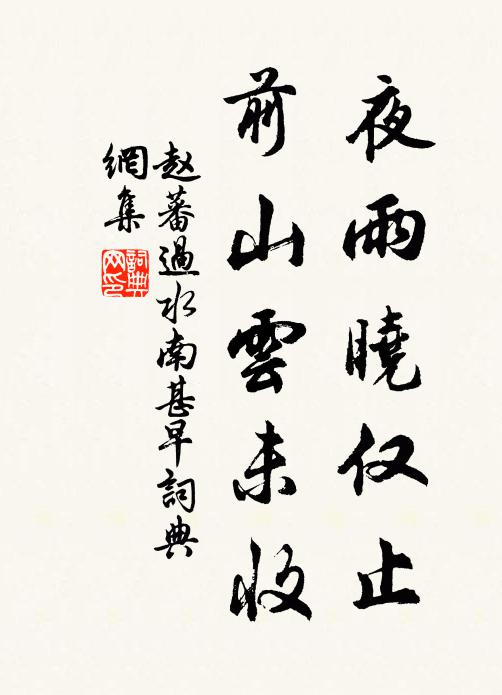 夜雨曉仅止
前山雲未收
赵蕃過水南甚早詞典
網集
詞典網印